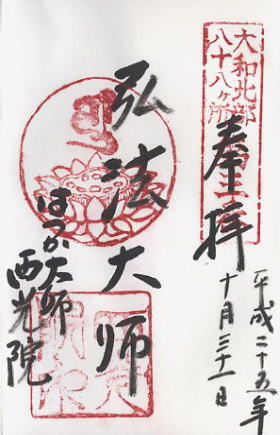 大和北部
八十八ヶ所
奉拝
平成二十五年
十月三十一日
弘法大師
はつか大師
西光院